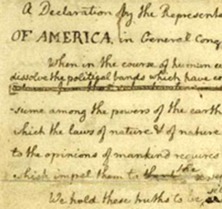 A Declaration by the Represent
OF AMERICA, in General Cong
When in the course of human e
dissolve the political bands which have co
-sume among the powers of the earth
which the laws of nature & of nature
to the opinions of mankind requires
which impel them to the
We hold these truths to be